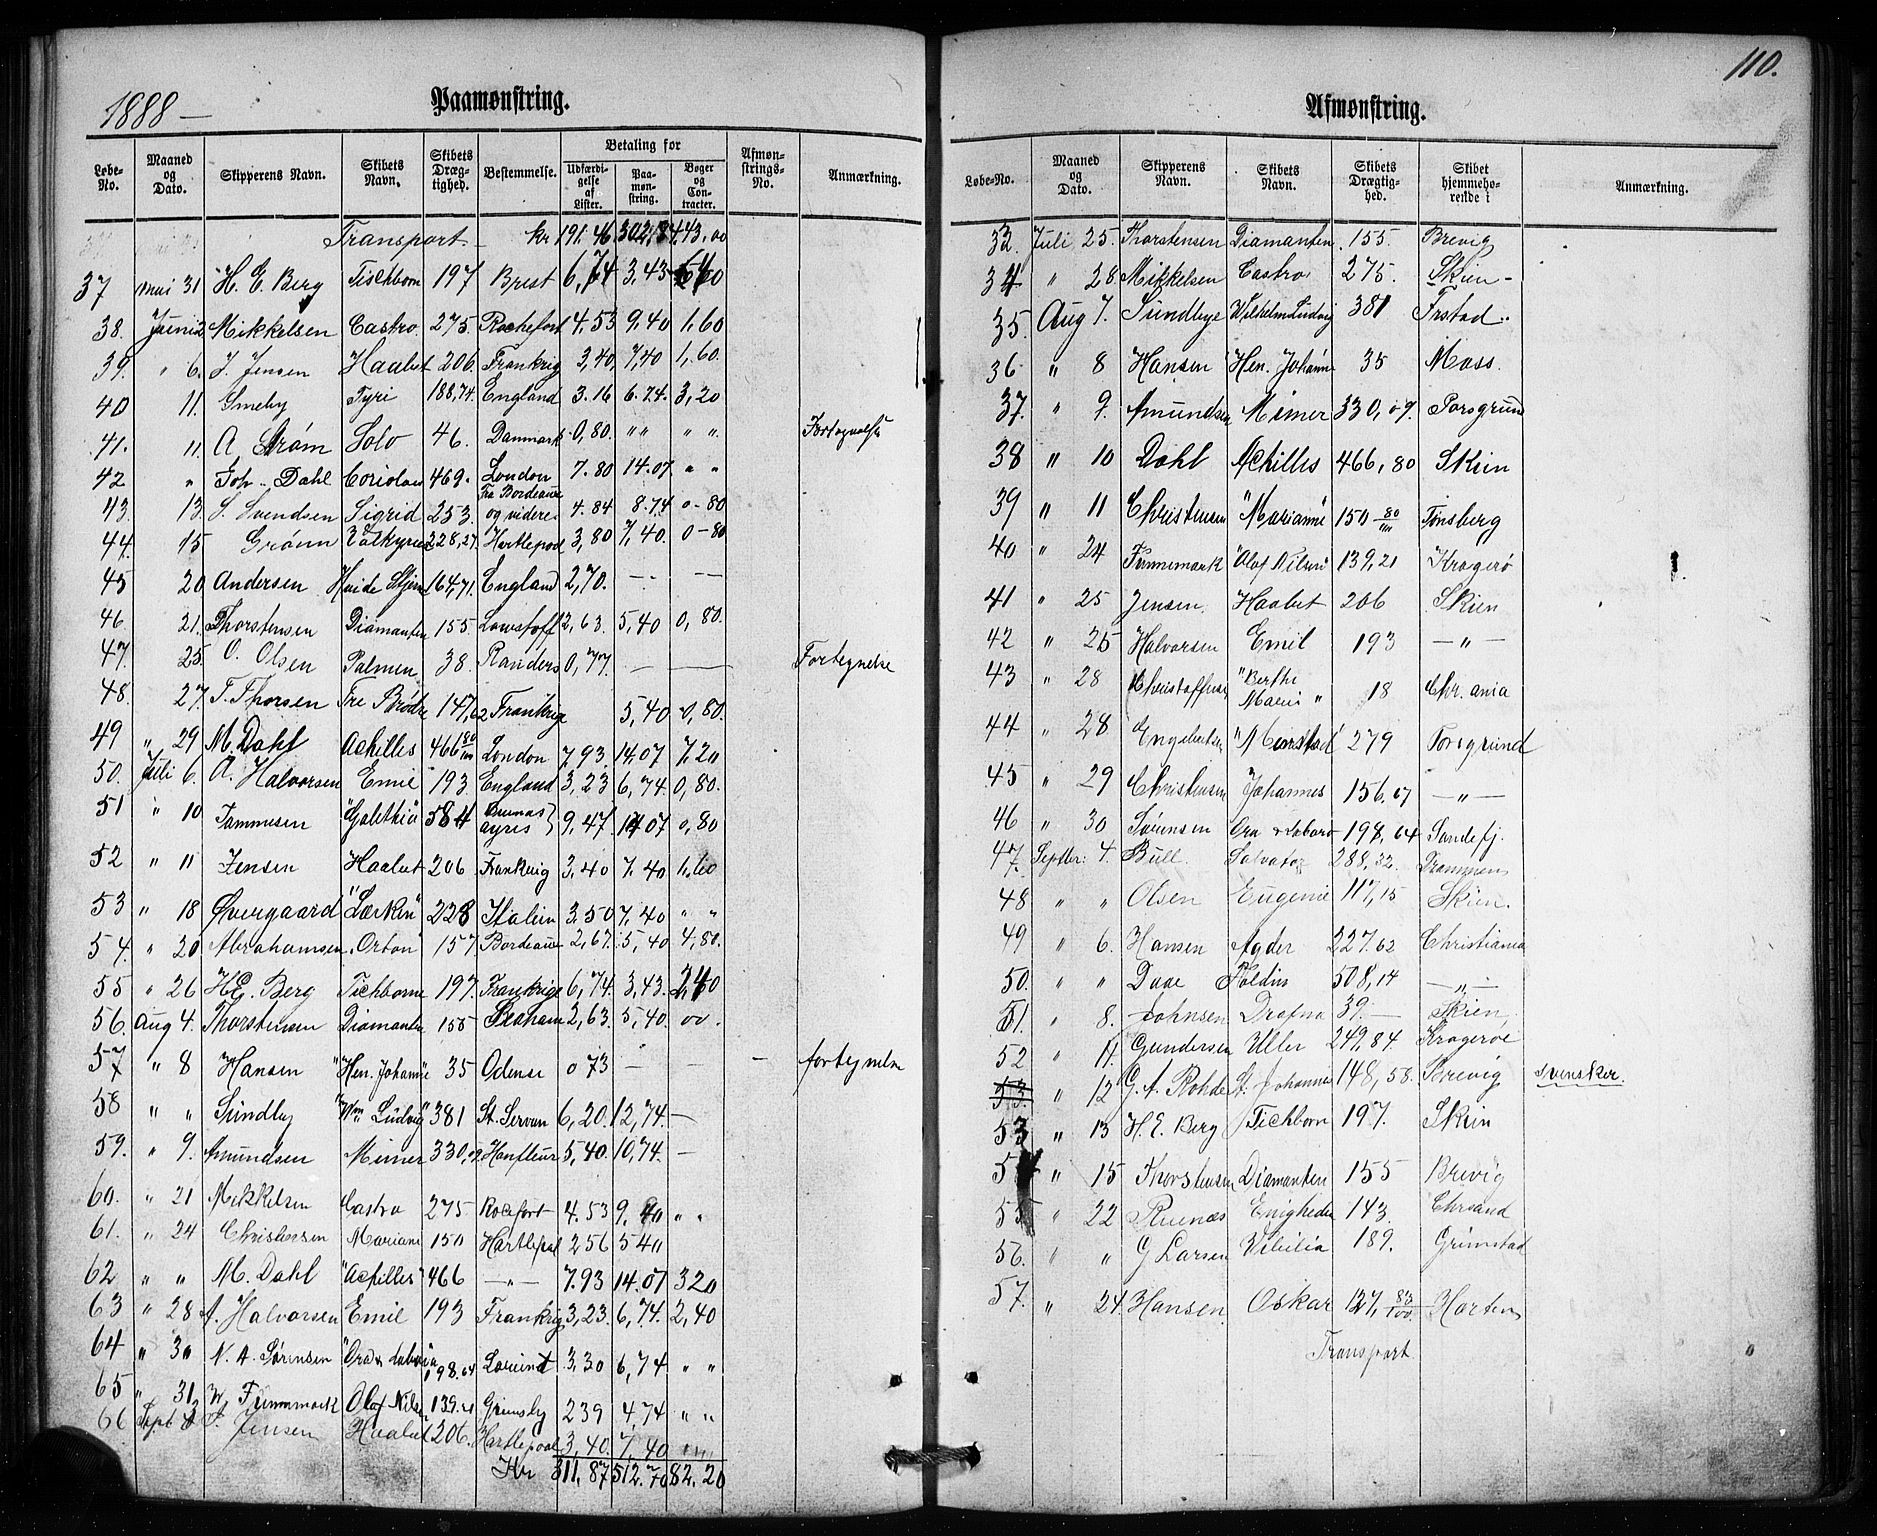 1888 —
Paamønstring.
Løbe-No. | Maaned og Dato. | Skipperens Navn. | Skibets Navn. | Skibets Drægtighed. | Bestemmelse. | Betaling for | Udfærdigelse af Lister. | Paamønstring. | Bøger og Contracter. | Afmønstrings-No. | Anmærkning.
Transport kr 191.46 302,84 43,00
37 mai 31 H. E. Berg Tischborn 197 Brest 6,74 3,43
38. Juni 2 Mikkelsen Castro 275. Rochefort 4.53 9,40 1,60
39. " 6. J. Jensen Haabet 206. Frankrig 3,40 7,40 1,60.
40 11. Smeby Tyri 188,74. England 3.16 6.74. 3,20
41. 11. A Strøm Solo 46. Danmark 0,80. " " " " Fortegnelse
42 " Joh. Dahl Coriolan 469. London 7.80 14.07 " "
43. 13. S. Svendsen Sigrid 253. Fra Bordeaux og videre. 4.84 8.74 0-80
44. 15 Grønn Valkyrie 228,27 Hartlepool 3,80 7,40. 0-80
45 20 Andersen Hvide Stjerne 164,71 England 2,70. — —
46. 21. Thorstensen Diamanten 155 Lowstoff 2,63. 5,40 0,80.
47. 25. O. Olsen Palmen 38. Randers 0,77. — — Fortegnelse
48. 27. T. Thorsen Tre Brødre 147,62 Frankrig 5,40 0,80.
49 " 29 M. Dahl Achilles 466 80/100 London 7,93. 14,07 7,20
50. Juli 6. A. Halvorsen Emil 193. England 3,23 6,74. 0,80.
51 " 10 Tammesen "Galethia" 584 Buenos ayres 9,47 14 07 0,80
52 " 11 Jensen Haabet 206 Frankrig 3,40 7,40 1,60
53 " 18 Overgaard "Lærken" 228 Italien 3.50 7,40 " "
54. " 20 Abrahamsen "Orion" 157 Bordeaux 2,67. 5,40 4,80.
55 " 26 H.E. Berg Tichborne 197. Frankrige 6,74. 3,43. 2,40
56. Aug 4. Thorstensen Diamanten 155 Seaham 2,63. 5,40 00.
57 " 8 Hansen "Hen. Johanne" 35 Odense 0 73 — — — fortegnelse
58 " " Sundby "Wm Ludvig" 381 St. Servan 6,20. 12,74. —
59. " 9. Amundsen Mimer 330,09 Honfleur 5,40. 10,74. —
60. " 21 Mikkelsen Castro 275 Rocefort 4.53 9,40 " "
61. " 24 Christensen Mariane 150 Hartlepol 2 56 5 40
62 " " M. Dahl "Achilles" 466 —"— 7.93 14.07 3 20
63 " 28 A. Halvorsen Emil 193 Frankrig 3,23. 6,74. 2,40
64 " 30 N. A. Sørensen "Ora & Labora 198.64 3,30 6,74 " "
65 " 31 W Finnmark Olaf Nilsen 139.21 Grimsby 2 39 4,74 " "
66 Sept 3 J. Jensen Haabet 206. Hartlepool 3,40. 7,40 " "
Kr 311,87 512.70 82.20
110.
Afmønstring.
Løbe-No. | Maaned og Dato. | Skipperens Navn. | Skibets Navn. | Skibets Drægtighed. | Skibet hjemmehørende i | Anmærkning.
33. Juli 25. Thorstensen Diamanten 155. Brevig
34 " 28 Mikkelsen Castro 275. Skien —
35 Aug 7. Sundbye Wilhelm Ludvig 381 Frstad.
36 " 8 Hansen Hen. Johanne 35 Moss.
37. " 9. Amundsen Mimer 330,09. Porsgrund
38 " 10 Dahl Achilles 466,80 Skien
39 " 11 Christensen "Marianne" 150 80/100 Tønsberg
40 " 24 Finnemark "Olaf Nilsen" 139,21 Kragerø
41 " 25 Jensen Haabet 206 Skien
42 " 25 Halvorsen Emil 193 — " —
43 " 28 Christoffersen "Berthe Marie" 18 Chr. ania
44 " 28 Engebretsen "Menstad" 279 Porsgrund
45 " 29 Christensen Johannes 156.07 — " —
46 " 30 Sørensen Ora & Labora 198,64 Sandefj.
47. Septbr: 4. Bull. Salvator 288,32. Drammen
48 " " Olsen Eugenie 117,15 Skien.
49 " 6. Hansen Agder 227.62 Christiania
50. " " Daae Poldus 508,14 — " —
51. " 8. Johnsen Drafna 39. — Skien
52 " 11. Gundersen Uller 249,84. Kragerøe
53 " 12 G. A. Rohde St. Johannes 148,58. Brevig svensker.
53 " 13 H. E. Berg Tichborn 197. Skien
54 " 15 Thorstensen Diamanten 155 Brevig
55 " 22 Enigheden 143. Chrsand
56. " " G Larsen Vibilia 189. Grimstad
57. " 24. Hansen Oskar 127, 83/100 Horten
Transport